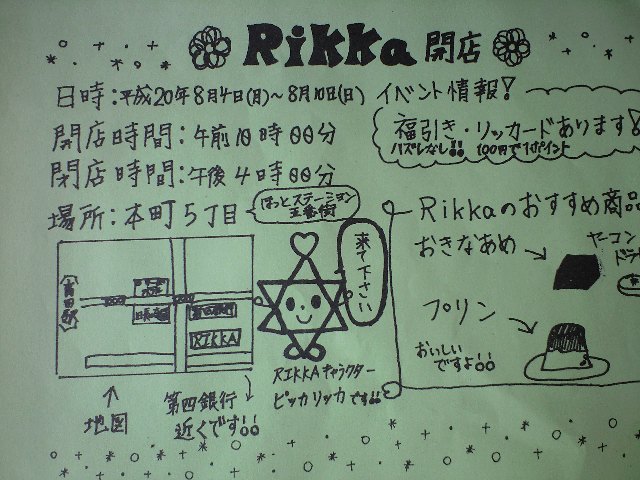 Rikka 開店
日時:平成20年8月4日(月)~8月10日(日)
開店時間:午前10時00分
閉店時間:午後4時00分
場所:本町5丁目
ほっとステーション
五番街
イベント情報!
福引き・リッカードあります!
ハズレなし!! 100円で1ポイント
来て下さい
Rikkaのおすすめ商品
おきなあめ
ヤーコン
ドラ
プリン
おいしい
ですよ!!
高田駅
RIKKA
地図
第四銀行
近くです!!
RIKKAキャラクター
ピッカリッカです!!